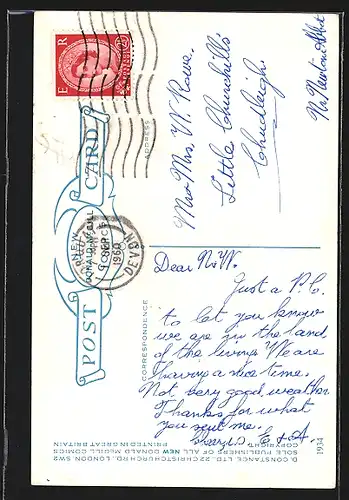 POST CARD
"NEW"
DONALD McGILL
COMICS
CORRESPONDENCE
ADDRESS
E R
1960
DEVON
Dear N & W.
Just a P.C.
to let you know
we are in the land
of the living. We are
having a nice time.
Not very good weather.
Thanks for what
you sent me.
E & A.
Mr & Mrs. W. Rowe.
Little Churchills
Chudleigh
Nr Newton Abbot
1934
D. CONSTANCE LTD. 22 CHRISTCHURCH RD. LONDON SW2
SOLE PUBLISHERS OF ALL NEW DONALD McGILL COMICS
COPYRIGHT. PRINTED IN GREAT BRITAIN